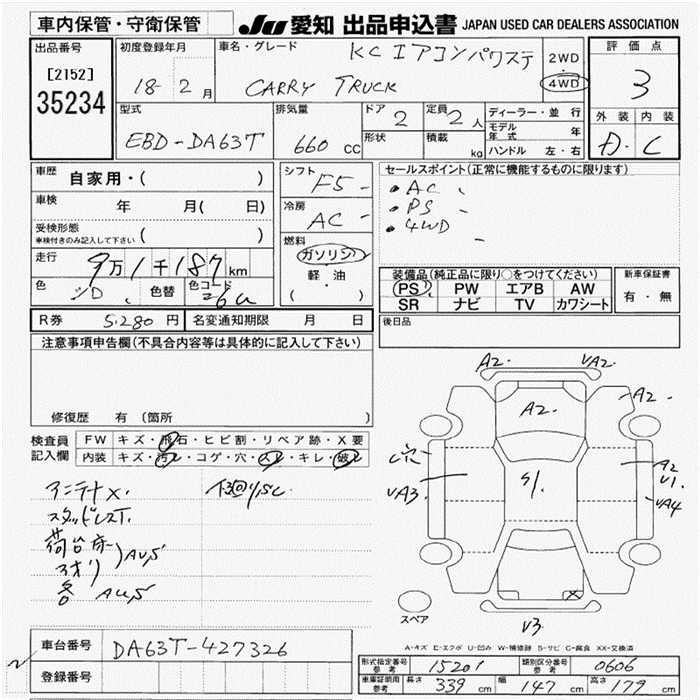 車内保管・守衛保管
JU 愛知 出品申込書 JAPAN USED CAR DEALERS ASSOCIATION
出品番号
[2152]
35234
初度登録年月
18- 2 月
車名・グレード
KC エアコン パワステ
CARRY TRUCK
2WD
・
4WD
評価点
3
型式
EBD-DA63T
排気量
660 cc
ドア 2
形状
定員 2 人
積載 kg
ディーラー・並 行
モデル年式 年
ハンドル 左・右
外装 内装
D・C
車歴 自家用・( )
車検 年 月( 日)
受検形態
車検付きのみ記入して下さい ( )
走行 9万1千187km
色 色替 色コード 26U
シフト F5-
冷房 AC-
燃料
ガソリン
軽・油
( )
セールスポイント(正常に機能するものに限ります)
・AC
・PS
・4WD
装備品(純正品に限り○をつけてください)
PS PW エアB AW
SR ナビ TV カワシート
新車保証書
有・無
R券 5,280 円 名変通知期限 月 日
後日品
注意事項申告欄(不具合内容等は具体的に記入して下さい)
修復歴 有 (箇所 )
検査員記入欄
FW キズ・飛石・ヒビ割・リペア跡・X要
内装 キズ・汚レ・コゲ・穴・ハレ・キレ・破レ
アンテナX.
スタッドレスT.
荷台床
アオリ
AU,S
各 AU,S
A2. VA2.
A2. A2.
穴
VA3.
S/.
A2
V1.
VA4
X
V3.
スペア
A-キズ E-エクボ U-凹み W-補修跡 S-サビ C-腐食 XX-交換済
車台番号 DA63T-427326
登録番号
形式指定番号 参考 15201
類別区分番号 参考 0606
車庫証明用参考 長さ 339 cm 幅 147 cm 高さ 179 cm